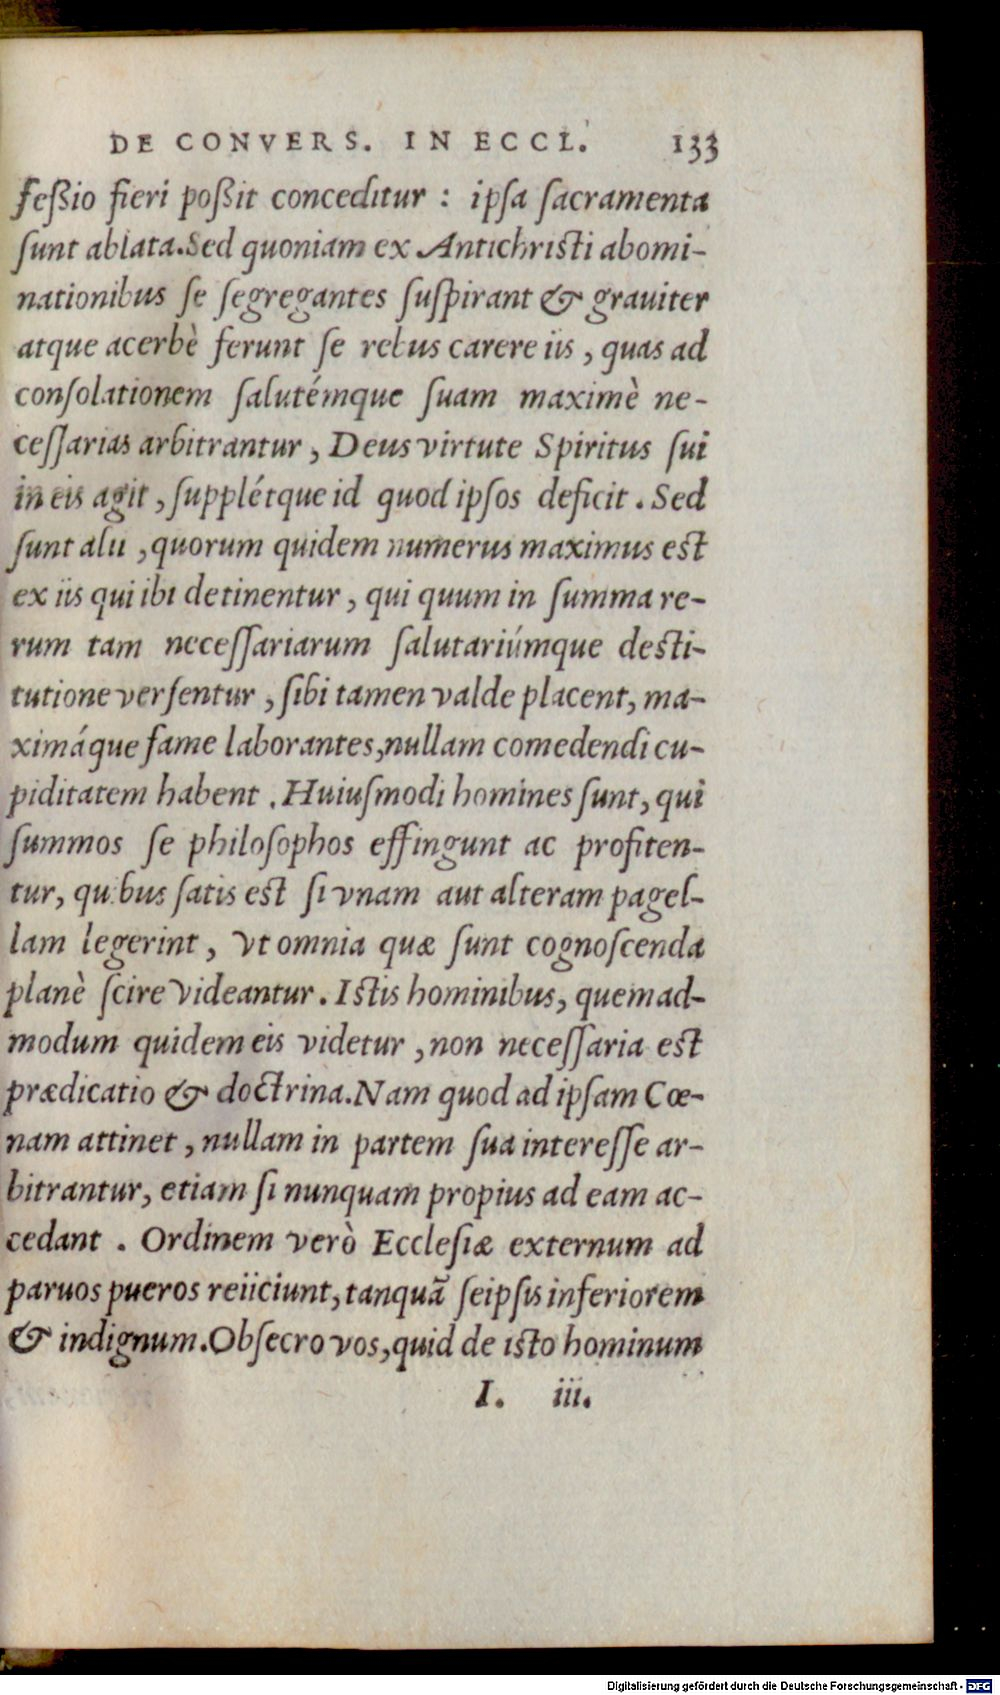 DE CONVERS. IN ECCL. 133
feßio fieri poßit conceditur : ipsa sacramenta
sunt ablata. Sed quoniam ex Antichristi abomi-
nationibus se segregantes suspirant & grauiter
atque acerbè ferunt se rebus carere iis, quas ad
consolationem salutémque suam maximè ne-
cessarias arbitrantur, Deus virtute Spiritus sui
in eis agit, supplétque id quod ipsos deficit. Sed
sunt alii, quorum quidem numerus maximus est
ex iis qui ibi detinentur, qui quum in summa re-
rum tam necessariarum salutariúmque desti-
tutione versentur, sibi tamen valde placent, ma-
ximáque fame laborantes, nullam comedendi cu-
piditatem habent. Huiusmodi homines sunt, qui
summos se philosophos effingunt ac profiten-
tur, quibus satis est si vnam aut alteram pagel-
lam legerint, vt omnia quæ sunt cognoscenda
planè scire videantur. Istis hominibus, quemad-
modum quidem eis videtur, non necessaria est
prædicatio & doctrina. Nam quod ad ipsam Cœ-
nam attinet, nullam in partem sua interesse ar-
bitrantur, etiam si nunquam propius ad eam ac-
cedant. Ordinem verò Ecclesiæ externum ad
paruos pueros reiiciunt, tanquã seipsis inferiorem
& indignum. Obsecro vos, quid de isto hominum
I. iii.
Digitalisierung gefördert durch die Deutsche Forschungsgemeinschaft - DFG